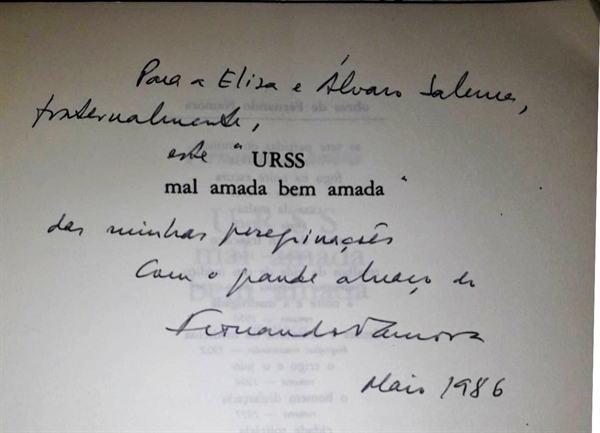 Para a Elisa e Álvaro Salema,
fraternalmente,
este "URSS
mal amada bem amada"
das minhas peregrinações
Com o grande abraço do
Fernando Namora
Maio 1986